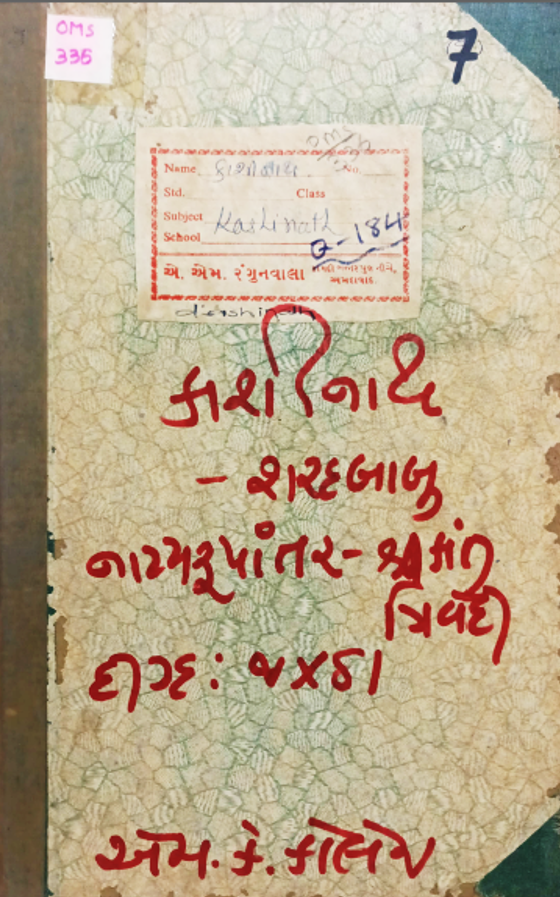 OMS
335
7
Name કાશીનાથ No.
Std. Class
Subject Kashinath
School Q-184
એ. એમ. રંગુનવાલા
અમદાવાદ.
કાશીનાથ
- શરદબાબુ
નાટ્યરૂપાંતર - શ્રીમંત
ત્રિવેદી
એમ. કે. કોલેજ